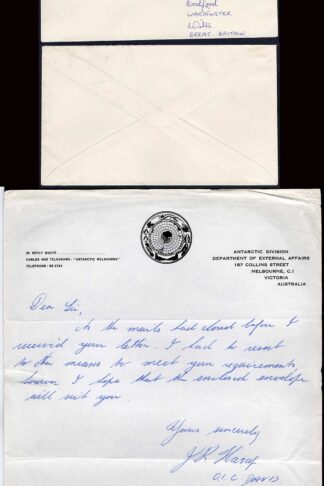 Codford
WARMINSTER
Wilts
GREAT BRITAIN
IN REPLY QUOTE
CABLES AND TELEGRAMS: "ANTARCTIC MELBOURNE"
TELEPHONE:
ANTARCTIC DIVISION
DEPARTMENT OF EXTERNAL AFFAIRS
187 COLLINS STREET
MELBOURNE, C.1
VICTORIA
AUSTRALIA
Dear Sir,
As the mails had closed before I
received your letter. I had to resort
to other means to meet your requirements,
however I hope that the enclosed envelope
will suit you.
Yours sincerely
O.I.C DAVIS.